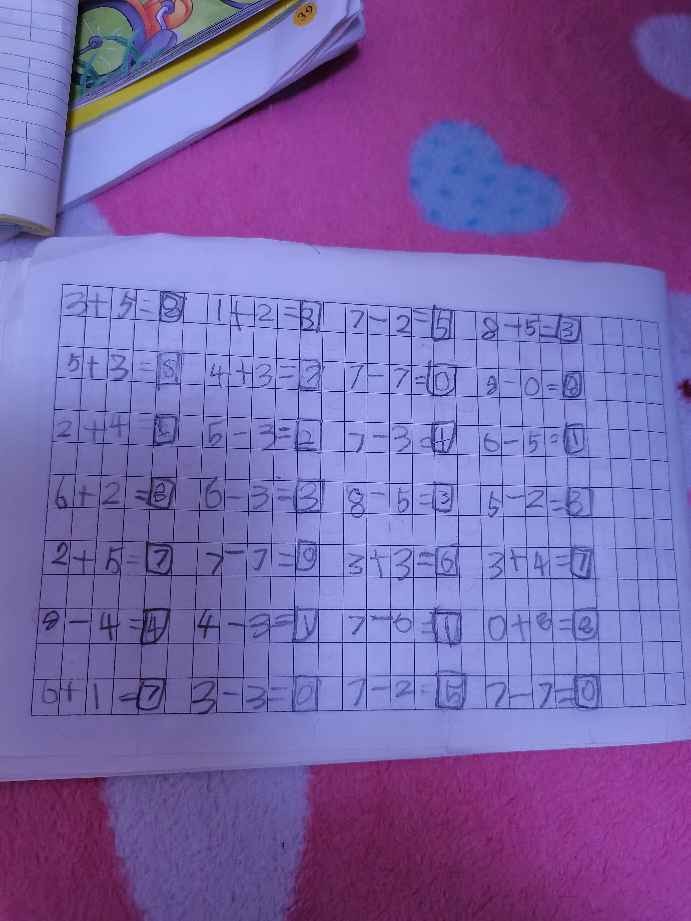 39
3+5=8 1+2=3 7-2=5 8-5=3
5+3=8 4+3=7 7-7=0 8-0=8
2+4= 5-3=2 7-3=4 6-5=1
6+2=8 6-3=3 8-5=3 5-2=3
2+5=7 7-7=0 3+3=6 3+4=7
8-4=4 4-3=1 7-6=1 0+8=8
6+1=7 3-3=0 7-2=5 7-7=0